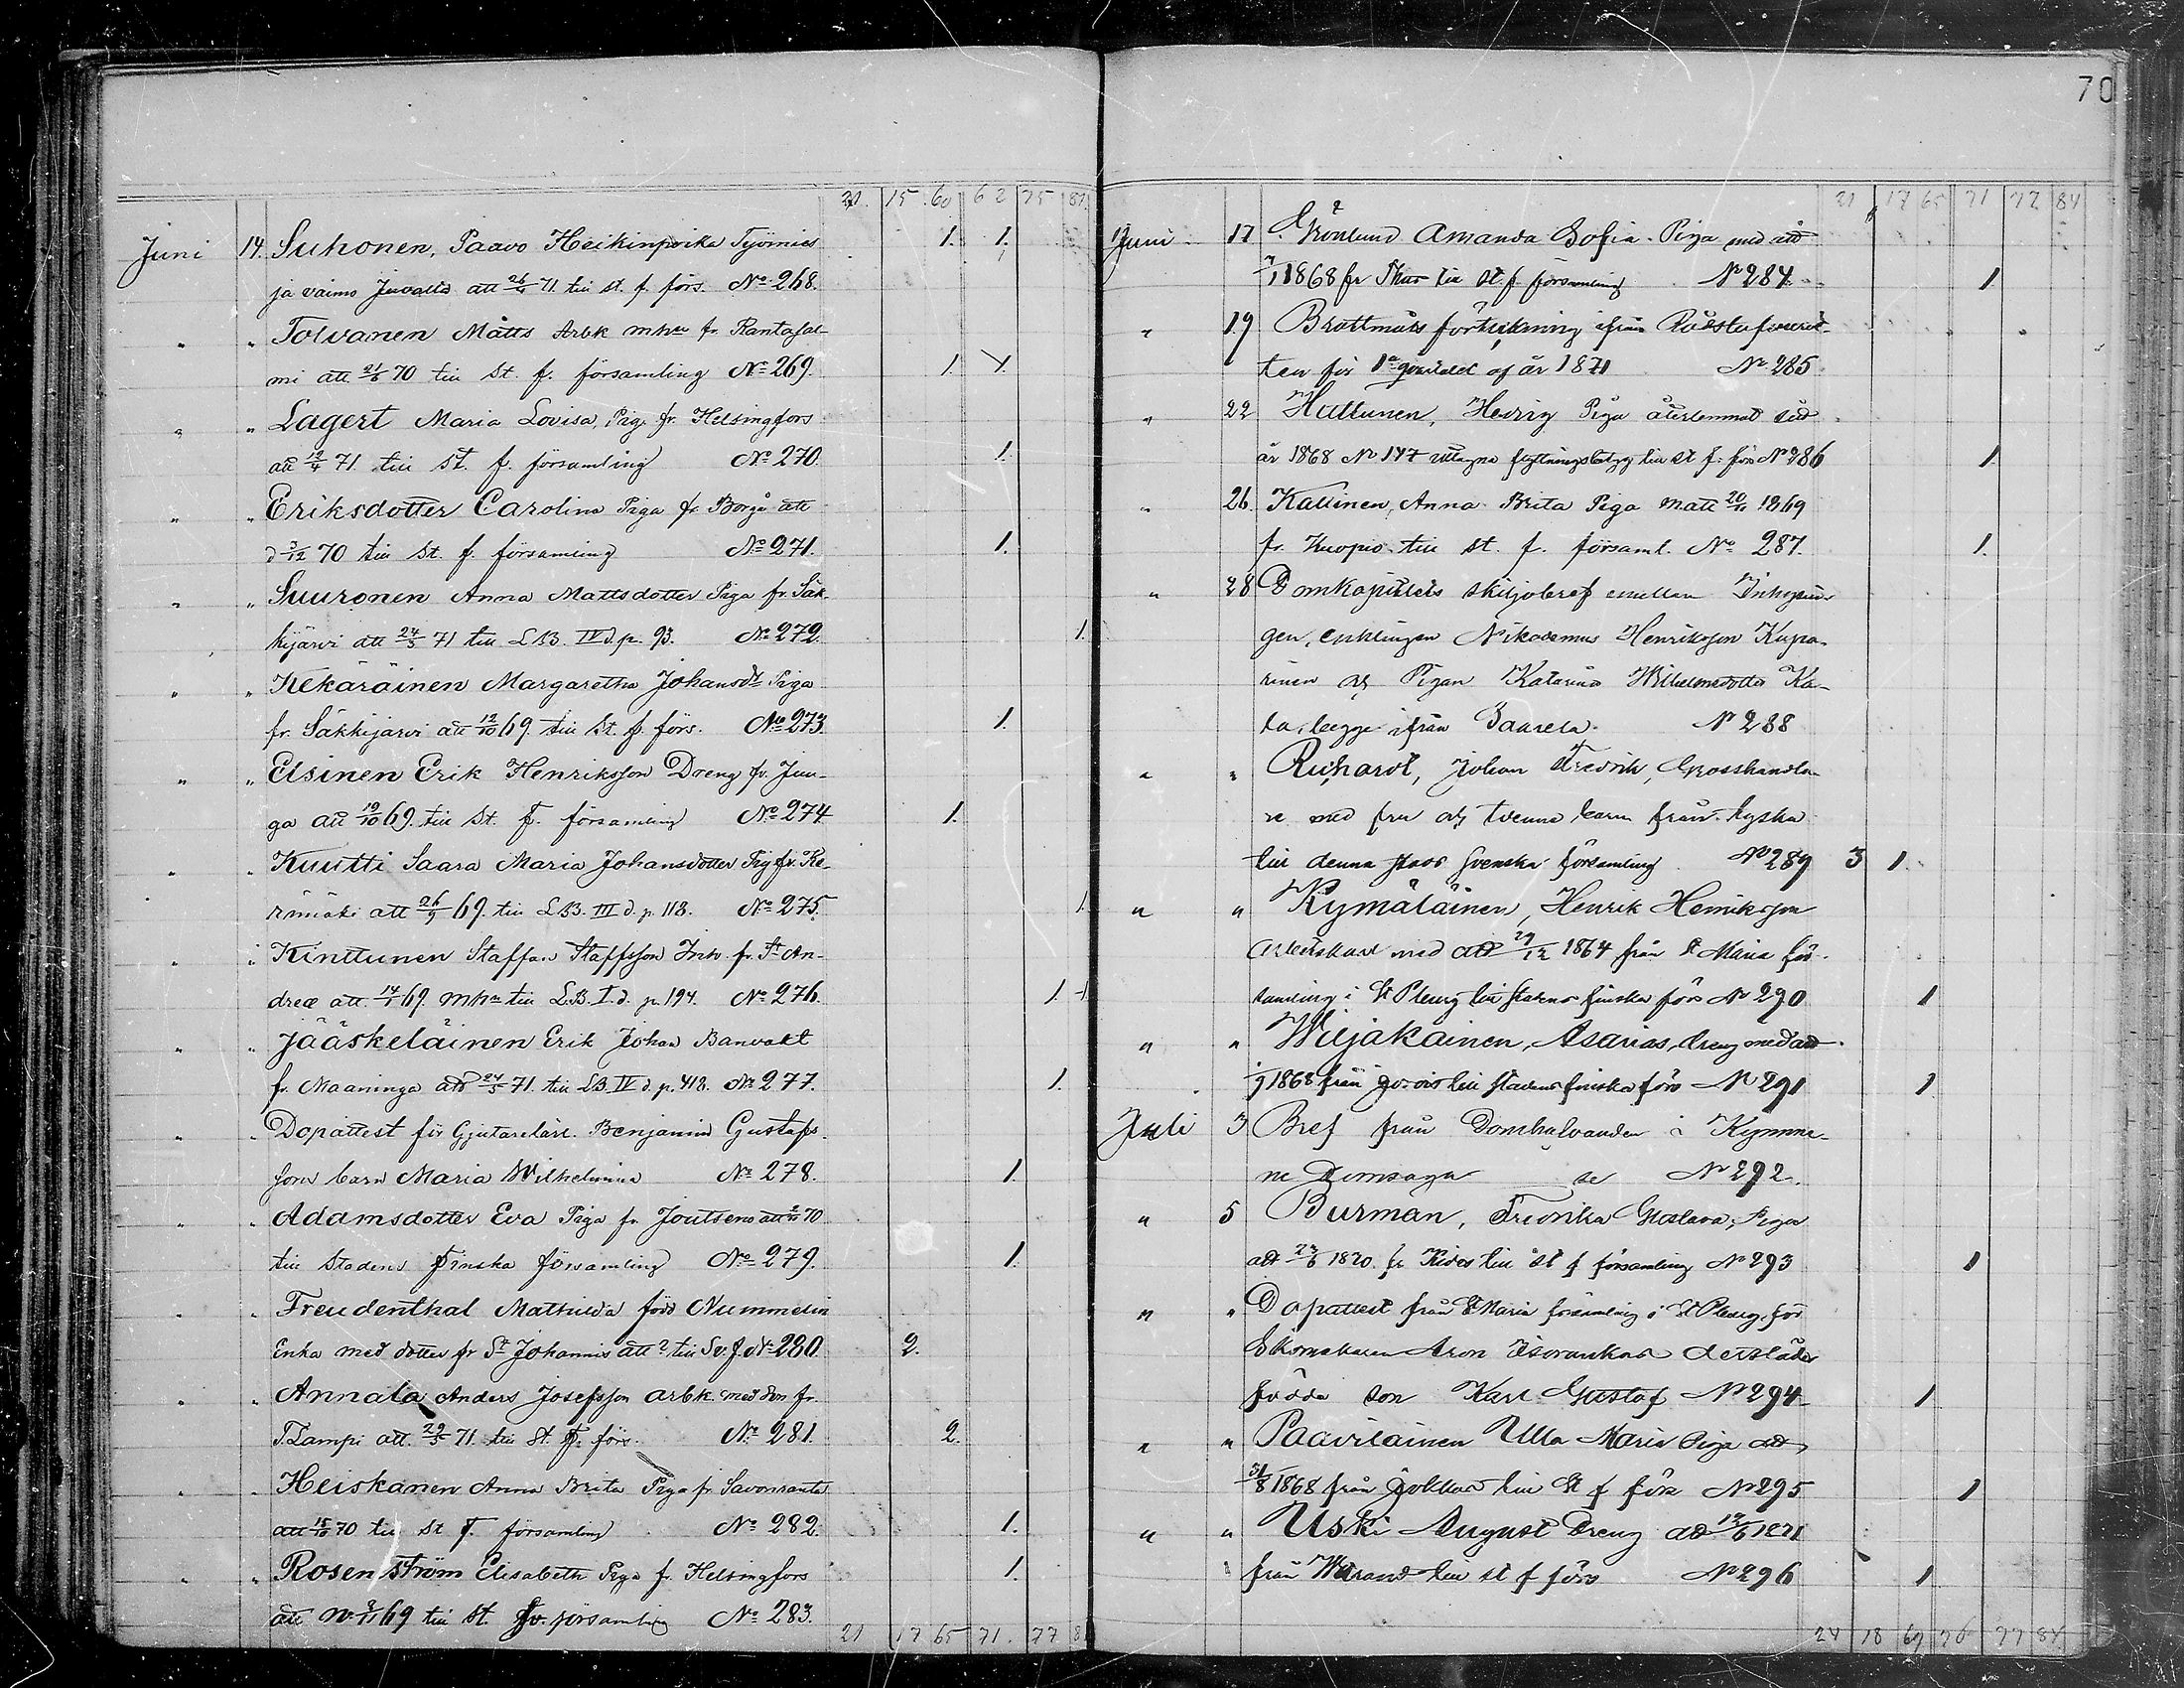 70
21 15 60 62 75 81
Juni 14. Suhonen, Paavo Heikinpoika Työmies 1. 1.
ja vaimo Juvalta att 26/4 71. till st. f. förs. No 268.
" " Tolvanen Matts Arbk mhu fr Rantasal-
mi att 21/6 70 till St. f. församling No 269. 1. 1.
" " Lagert Maria Lovisa, Pig. fr. Helsingfors
att 12/4 71 till St. f. församling No 270. 1.
" " Eriksdotter Carolina Piga fr Borgå att
d 3/12 70 till St. f. församling No 271. 1.
" " Suuronen Anna Mattsdotter Piga fr. Säk-
kijärvi att 24/5 71 till LB. IV d. p. 93. No 272. 1.
" " Kekäräinen Margaretha Johansdr Piga
fr. Säkkijärvi att 12/10 69. till St. f. förs. No 273. 1.
" " Elsinen Erik Henriksson Dreng fr. Juu-
ga att 19/10 69. till St. F. församling No 274 1.
" " Kuutti Saara Maria Johansdotter Pig fr. Ke-
rimäki att 26/9 69. till LB. III d. p. 118. No 275. 1.
" " Kinttunen Staffan Staffsson Inh. fr. St An-
dreæ att 14/1 69. mhu till L.B. I. d. p. 194. No 276. 1. 1
" " Jääskeläinen Erik Johan Banvakt
fr. Maaninga att 24/5 71. till LB. IV d. p. 418. No 277. 1.
" " Dopattest för Gjutarelärl. Benjamin Gustafs-
sons barn Maria Wilhelmina No 278. 1.
" " Adamsdotter Eva Piga fr Joutseno att 70
till Stadens Finska församling No 279. 1.
" " Freudenthal Mathilda född Nummelin
Enka med dotter fr St Johannis att ? till Sv. f. No 280. 2.
" " Annala Anders Josefsson arbk. med son fr.
T. Lampi att. 29/5 71 till St. F. förs. No 281. 2.
" " Heiskanen Anna Brita Piga fr Savonranta
att 15/10 70 till St F. församling No 282. 1.
" " Rosenström Elisabeth Piga fr. Helsingfors 1.
att 69 till St. Sv. församling No 283.
21 17 65 71. 77 8
21 17 65 71 77 84
Juni 17 Grönlund Amanda Sofia. Piga med att
1868 fr Thus till St. f församling No 284. 1
" 19 Brottmåls förteckning ifrån Rådstufverrät-
ten för 1a qvartalet af år 1871 No 285
" 22 Huttunen, Hedvig Piga återlemnat sid
år 1868 No 147 uttagna flyttningsbetyg till St f. förs No 286 1
" 26 Kallinen, Anna Brita Piga m att 20/11 1869
fr. Kuopio till st. f. församl. No 287. 1.
" 28 Domkapitlets skiljobref emellan Inhysin-
gen, enklingen Nikodemus Henriksson Kupa-
rinen och Pigan Katarina Wilhelmsdotter Ka-
ta, begge ifrån Saarela. No 288
" " Richardt, Johan Fredrik, Grosshandla-
re med fru och tvenne barn från tyska
till denna stads svenska församling No 289 3 1.
" " Kymäläinen, Henrik Henriksson
Arbetskarl med att 29/12 1864 från St Maria för-
samling i St Pburg till stadens finska förs No 290 1
" " Wiljakainen, Asarias, dreng med att
1868 från Jorois till stadens finska förs No 291 1
Juli 3 Bref från Domhafvanden i Kymme-
ne Domsaga se No 292.
" 5 Burman, Fredrika Gustava, Piga
att 23/6 1870. fr Kides till st f församling No 293 1
" " Dopattest från St Maria församling i St Pburg, för
Skomakaren Aron derstädes
födda son Karl Gustaf No 294 1
" " Paavilainen Ulla Maria Piga att
31/8 1868 från Jokkas till St f förs No 295 1
" " Uski August Dreng att 12/6 1871
från Walrand till st f förs No 296 1
24 18 69 76 77 84